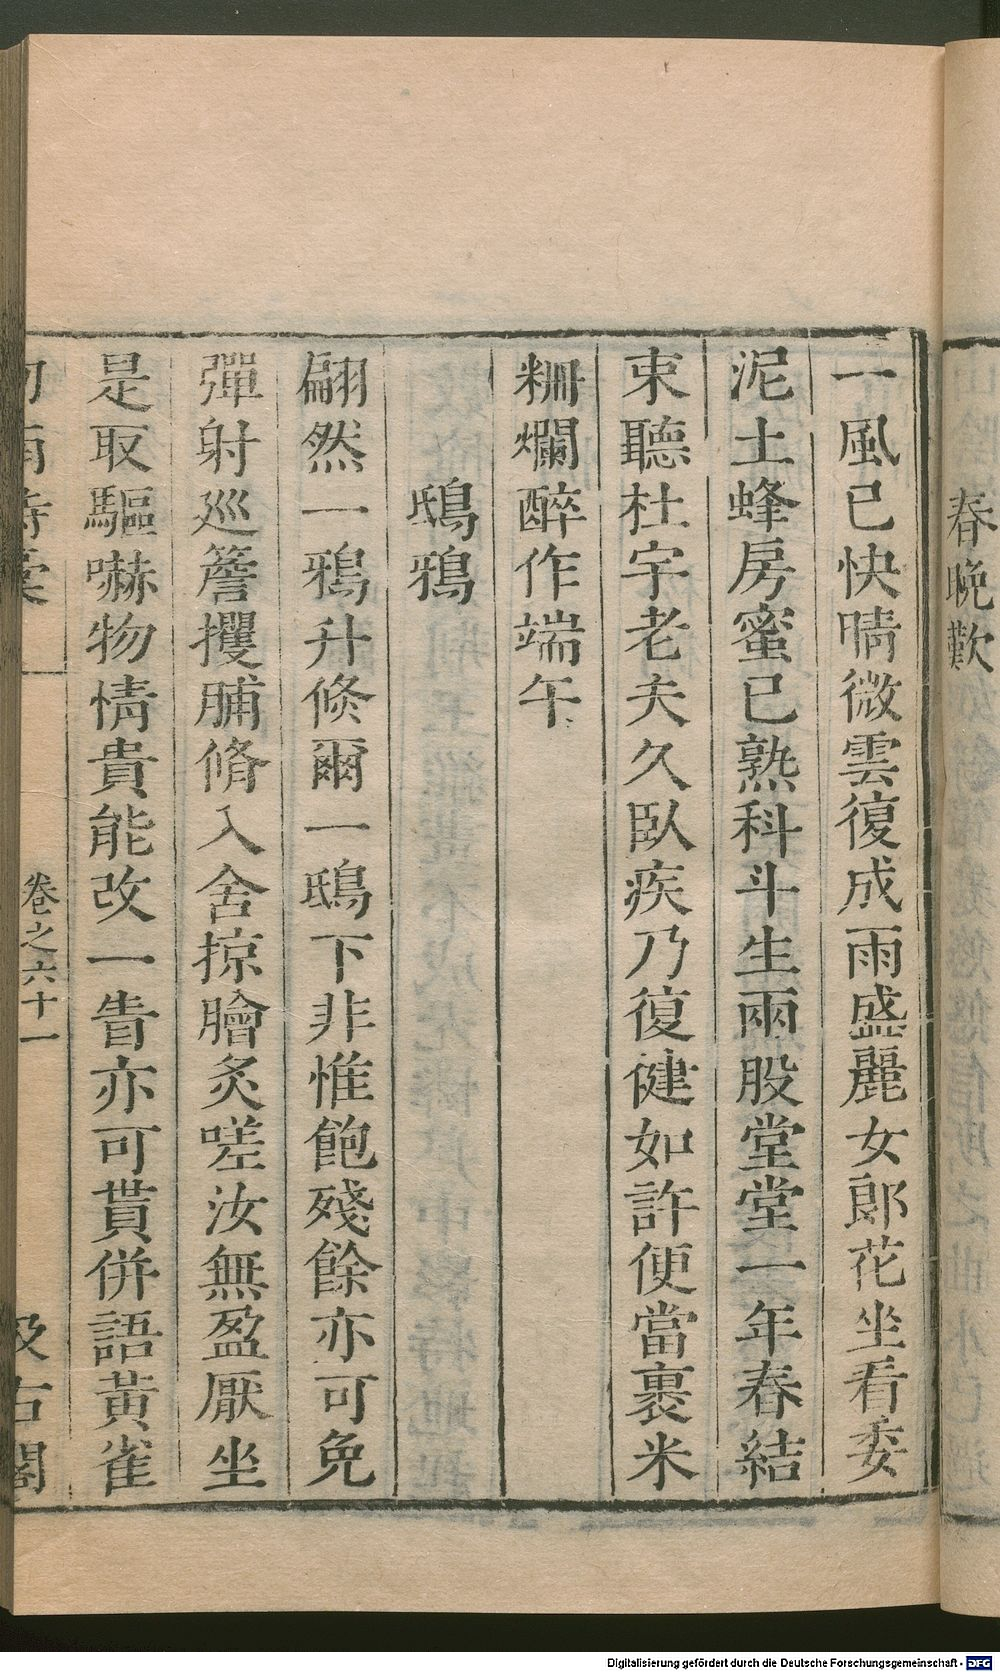 春晚歎
一風已快晴微雲復成雨盛麗女郎花坐看委
泥土蜂房蜜已熟科斗生兩股堂堂一年春結
束聽杜宇老夫久臥疾乃復健如許便當裹米
粣爛醉作端午
鴟鴉
翩然一鴉升倏爾一鴟下非惟飽殘餘亦可免
彈射巡簷攫脯脩入舍掠膾炙嗟汝無盈厭坐
是取驅嚇物情貴能改一眚亦可貰併語黃雀
卷之六十一
汲古閣
Digitalisierung gefördert durch die Deutsche Forschungsgemeinschaft - DFG